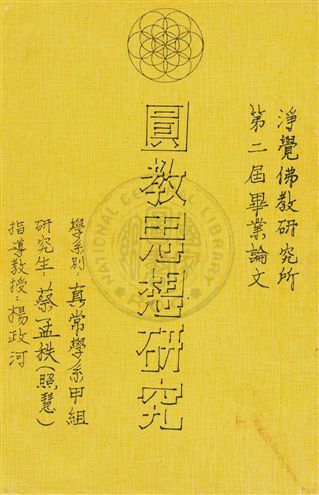 淨覺佛教研究所
第二屆畢業論文
圓教思想研究
學系別:真常學系甲組
研究生:蔡孟秩(照慧)
指導教授:楊政河
NATIONAL CENTRAL LIBRARY